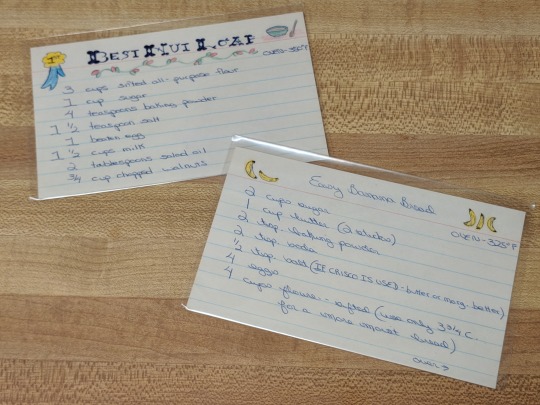 1st
BEST NUT LOAF
OVEN-350°F
3 cups sifted all-purpose flour
1 cup sugar
4 teaspoons baking powder
1 1/2 teaspoon salt
1 beaten egg
1 1/2 cups milk
2 tablespoons salad oil
3/4 cup chopped walnuts
Easy Banana Bread
OVEN-325°F
2 cups sugar
1 cup butter (2 sticks)
2 tsp. baking powder
2 tsp. soda
1/2 tsp. salt (IF CRISCO IS USED - butter or marg. better)
4 eggs
4 cups flour - sifted (use only 3 3/4 c.
for a more moist bread)
over>